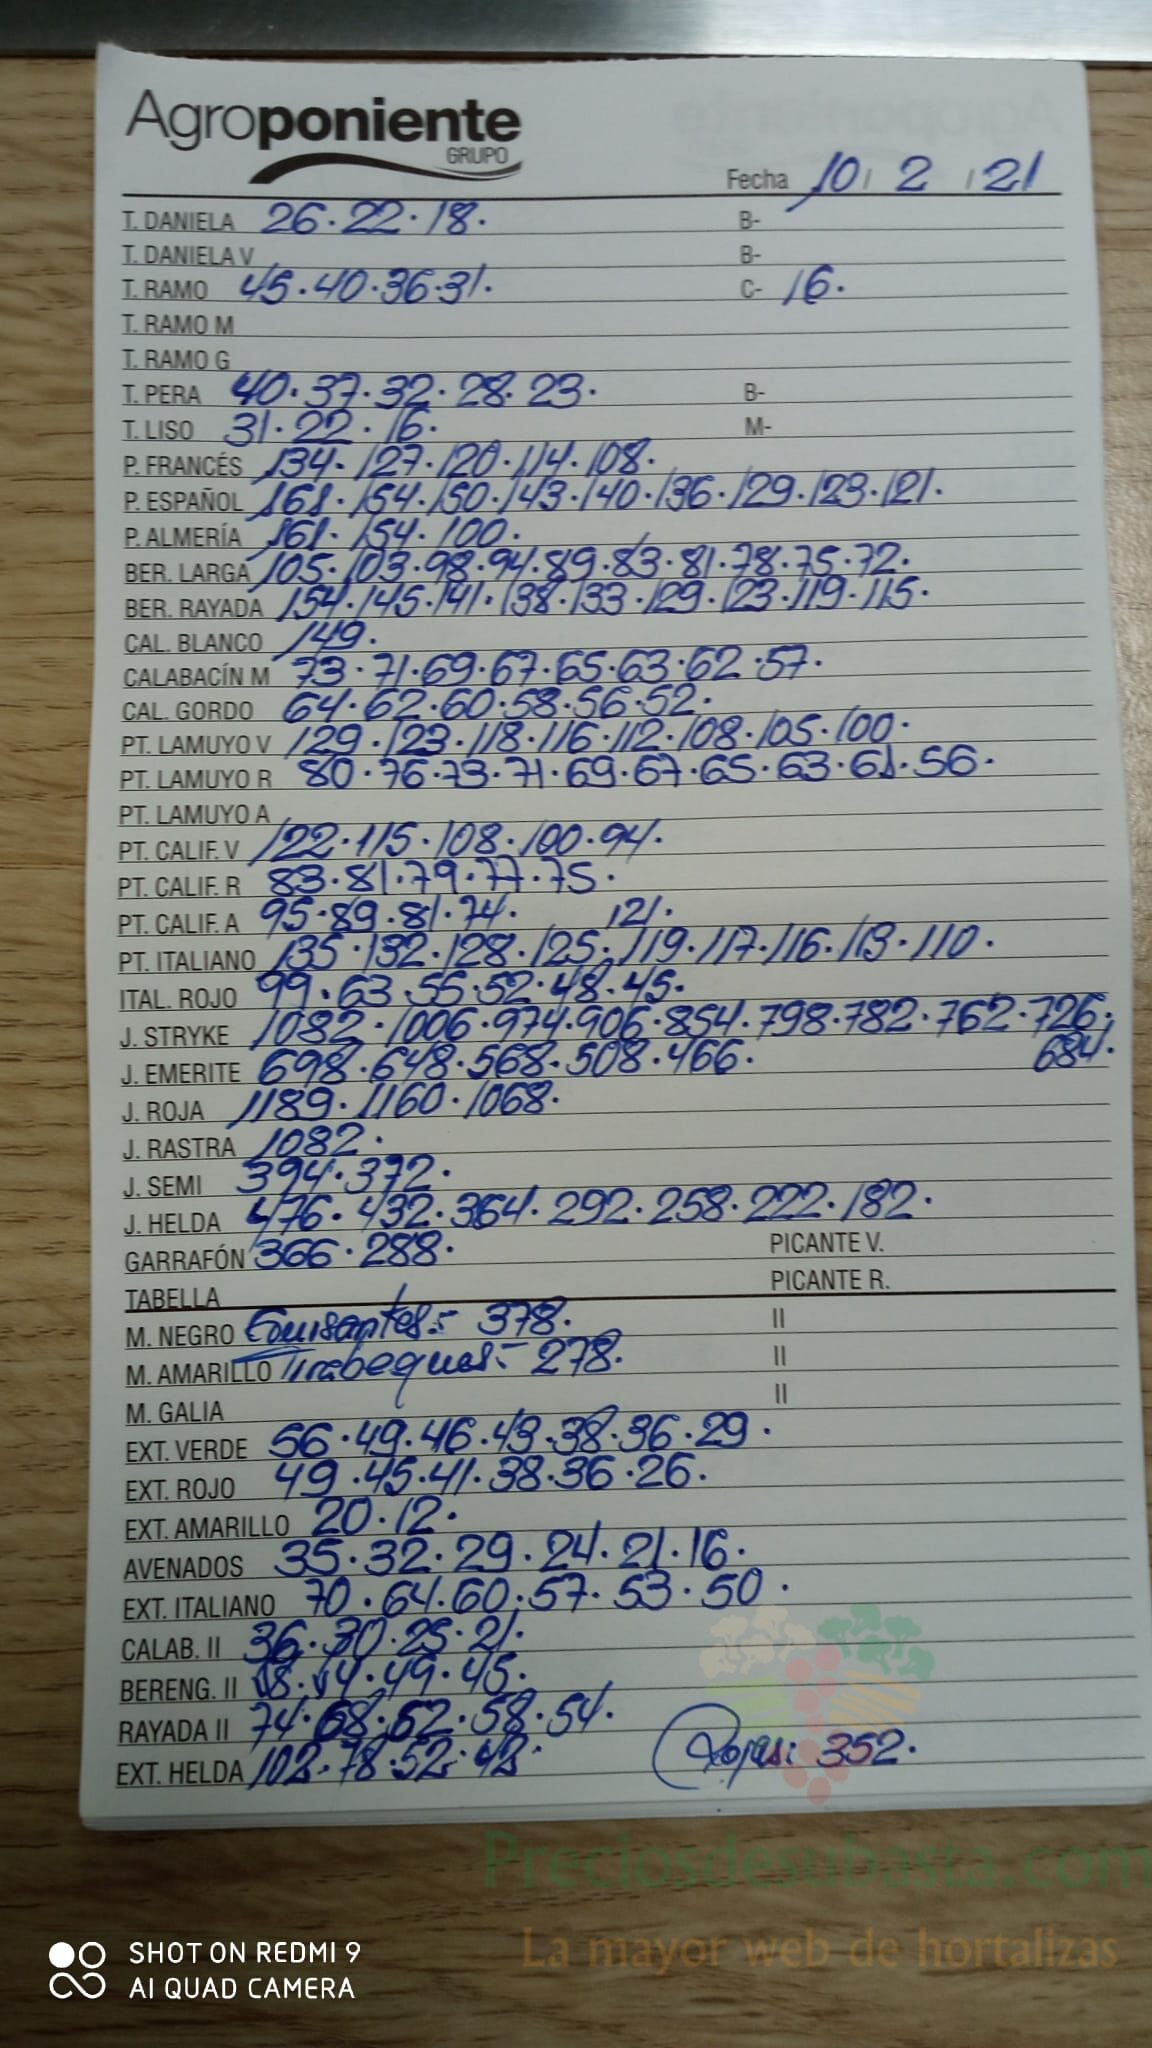 Agroponiente
GRUPO
Fecha 10 / 2 / 21
T. DANIELA 26.22.18. B-
T. DANIELA V B-
T. RAMO 45.40.36.31. C- 16.
T. RAMO M
T. RAMO G
T. PERA 40.37.32.28.23. B-
T. LISO 31.22.16. M-
P. FRANCÉS 134.127.120.114.108.
P. ESPAÑOL 161.154.150.143.140.136.129.123.121.
P. ALMERÍA 161.154.100.
BER. LARGA 105.103.98.94.89.83.81.78.75.72.
BER. RAYADA 154.145.141.138.133.129.123.119.115.
CAL. BLANCO 149.
CALABACÍN M 73.71.69.67.65.63.62.57.
CAL. GORDO 64.62.60.58.56.52.
PT. LAMUYO V 129.123.118.116.112.108.105.100.
PT. LAMUYO R 80.76.73.71.69.67.65.63.61.56.
PT. LAMUYO A
PT. CALIF. V 122.115.108.100.94.
PT. CALIF. R 83.81.79.77.75.
PT. CALIF. A 95.89.81.74. 121.
PT. ITALIANO 135.132.128.125.119.117.116.113.110.
ITAL. ROJO 99.63.55.52.48.45.
J. STRYKE 1082.1006.974.906.854.798.782.762.726.
J. EMERITE 698.648.568.508.466. 684.
J. ROJA 1189.1160.1068.
J. RASTRA 1082.
J. SEMI 394.372.
J. HELDA 476.432.364.292.258.222.182.
GARRAFÓN 366.288. PICANTE V.
TABELLA PICANTE R.
M. NEGRO Guisantes:- 378. II
M. AMARILLO Tirabeques:- 278. II
M. GALIA II
EXT. VERDE 56.49.46.43.38.36.29.
EXT. ROJO 49.45.41.38.36.26.
EXT. AMARILLO 20.12.
AVENADOS 35.32.29.24.21.16.
EXT. ITALIANO 70.64.60.57.53.50.
CALAB. II 36.30.25.21.
BERENG. II 49.45.
RAYADA II 74.68.62.58.54.
EXT. HELDA 102.78.52.42. Rojas: 352.
Preciosdesubasta.com
La mayor web de hortalizas
SHOT ON REDMI 9
AI QUAD CAMERA